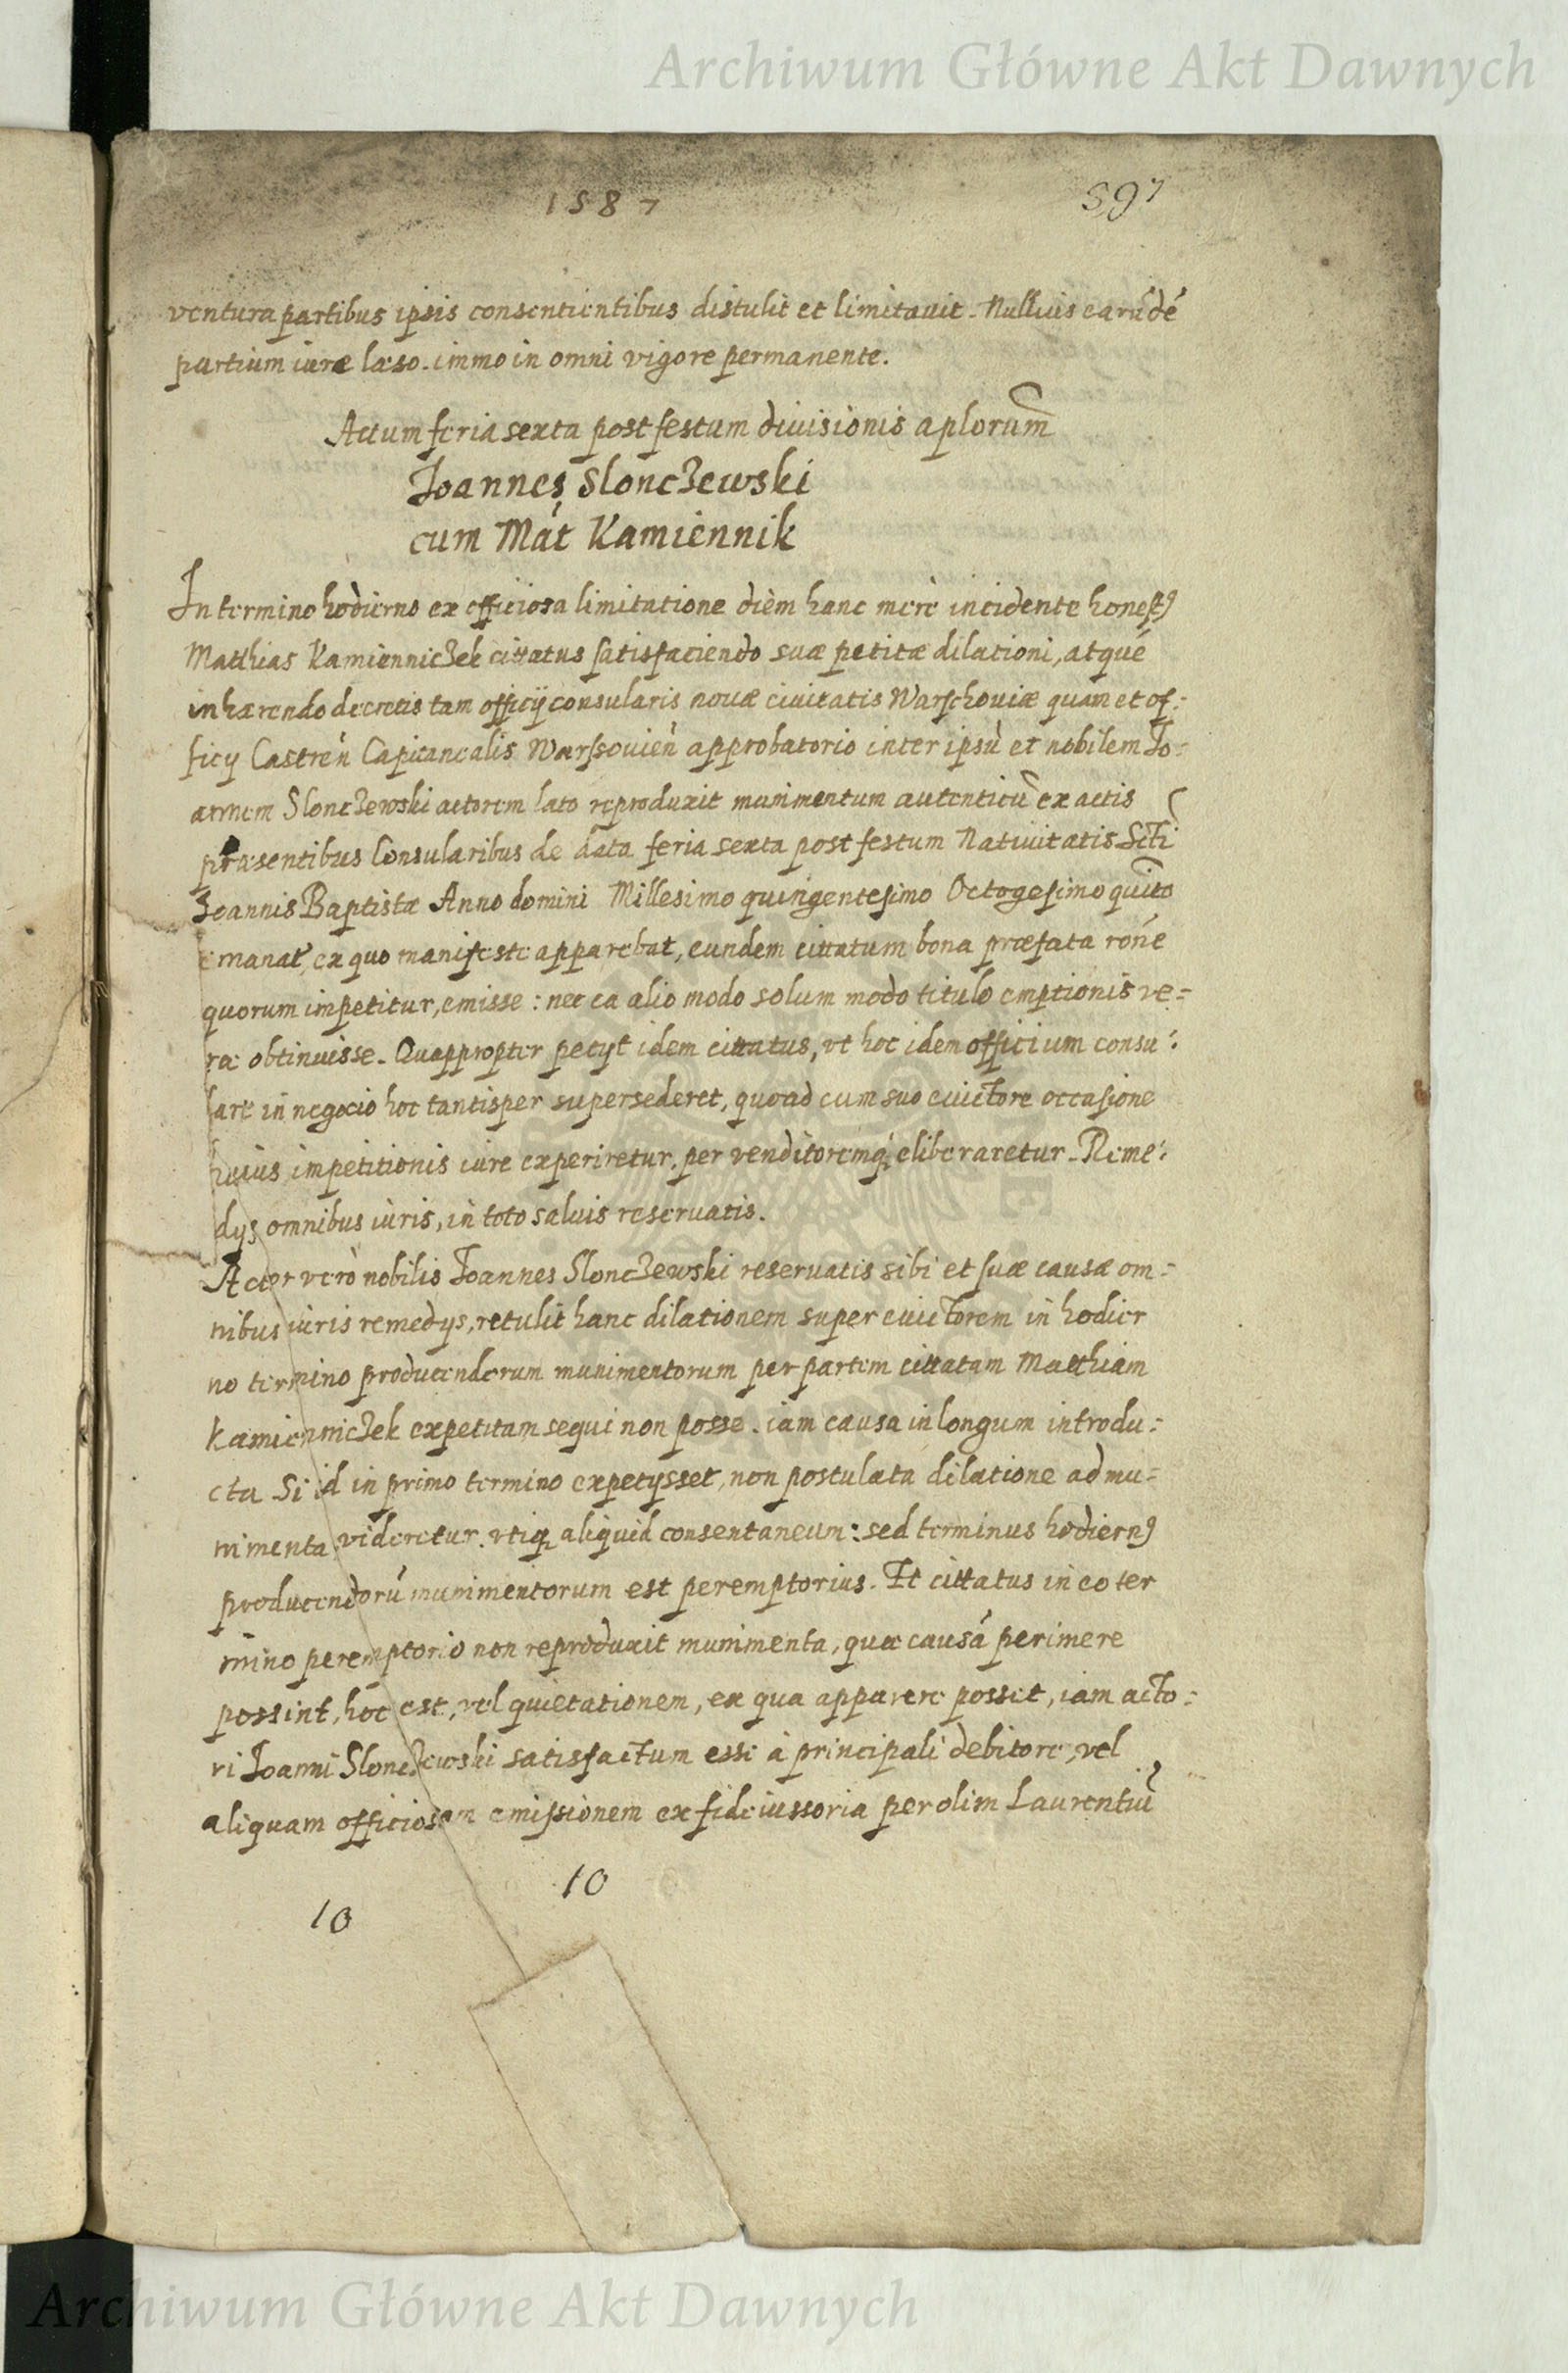 Archiwum Główne Akt Dawnych
1587
597
ventura partibus ipsis consentientibus distulit et limitauit. Nullius earūdē
partium iure læso. immo in omni vigore permanente.
Actum feria sexta post festum diuisionis aplorum
Joannes Slonczewski
cum Mat Kamiennik
In termino hodierno ex officiosa limitatione diem hanc mere incidente honest9
Matthias Kamienniczek cittatus satisfaciendo suæ petitæ dilationi, atque
inhærendo decretis tam officij consularis nouæ ciuitatis Warschouiæ quam et of:
ficij Castren Capitanealis Warssouien approbatorio inter ipsū et nobilem Jo:
annem Slonczewski actorem lato reproduxit munimentum autenticū ex actis
præsentibus Consularibus de data feria sexta post festum Natiuitatis Scti
Joannis Baptistæ Anno domini Millesimo quingentesimo Octogesimo quito
emanat, ex quo manifeste apparebat, eundem cittatum bona præfata rōne
quorum impetitur, emisse: nec ea alio modo solum modo titulo emptionis ve=
ræ obtinuisse. Quappropter petijt idem cittatus, vt hoc idem officium consu:
lare in negocio hoc tantisper supersederet, quoad cum suo euictore occasione
huius impetitionis iure experiretur, per venditoremq eliberaretur. Reme:
dys omnibus iuris, in toto saluis reseruatis.
Actor vero nobilis Joannes Slonczewski reseruatis sibi et suæ causæ om=
nibus iuris remedys, retulit hanc dilationem super euictorem in hodier
no termino producendorum munimentorum per partem cittatam Matthiam
Kamienniczek expetitam sequi non posse. iam causa in longum introdu:
cta Si id in primo termino expetysset, non postulata dilatione ad mu=
nimenta videretur. vtiq aliquid consentaneum: sed terminus hodiern9
producendorū munimentorum est peremptorius. Et cittatus in eo ter
mino peremptorio non reproduxit munimenta, quæ causā perimere
possint, hoc est, vel quietationem, ex qua apparere posset, iam acto:
ri Joanni Slonczewski satisfactum esse à principali debitore, vel
aliquam officiosam emissionem ex fideiussoria per olim Laurentiū
10
10
Archiwum Główne Akt Dawnych